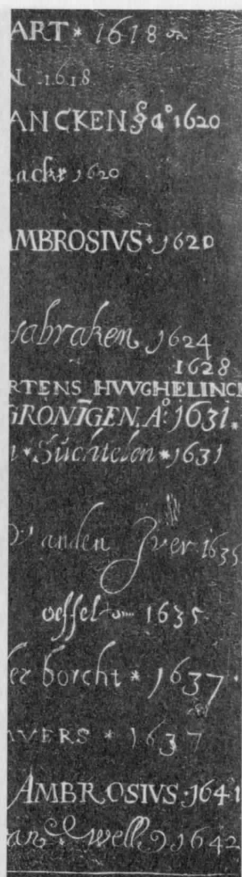 ART * 1618
N · 1618
ANCKEN § a° 1620
1620
AMBROSIVS * 1620
abraken, 1624
1628
RTENS HVVGHELINCK
GRONĪGEN. A° 1631.
* Sŭchtelen * 1631
anden 1635
oeffel 1635
er borcht * 1637 ·
AVERS * 1637
AMBROSIVS · 1641
an well 1642